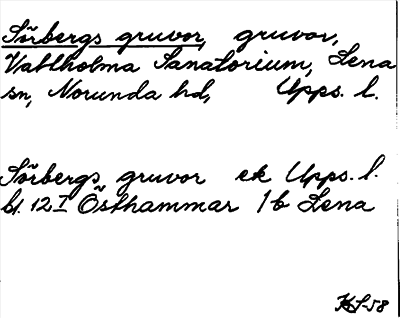 Sörbergs gruvor, gruvor,
Vattholma Sanatorium, Lena
sn, Norunda hd, Upps. l.
Sörbergs gruvor ek Upps. l.
bl. 12 I Östhammar 1b Lena
KS-58